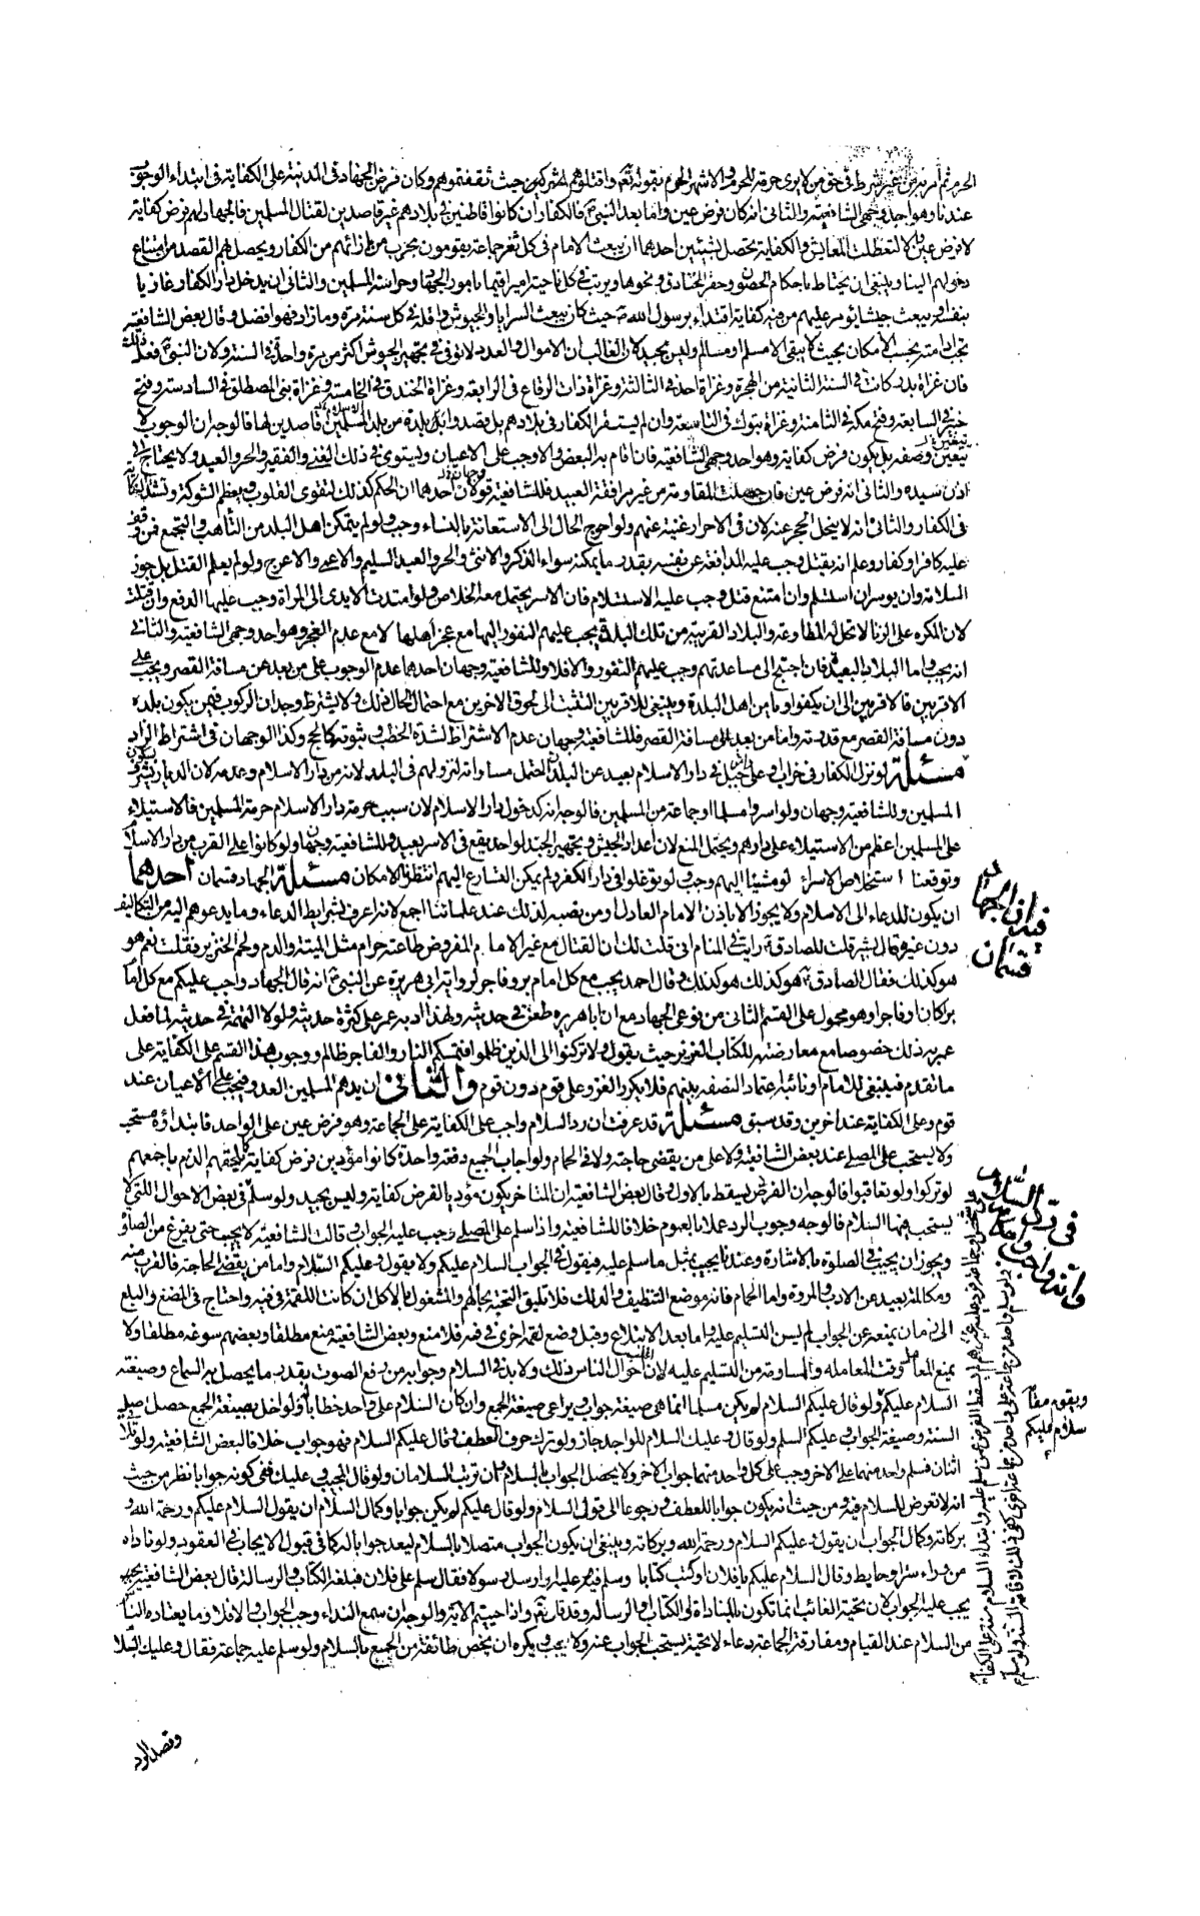 الحرم ثم امر به من غير شرط في حق من لا يرى حرمة للحرم والاشهر الحرم بقوله تعالى واقتلوا المشركين حيث ثقفتموهم وكان فرض الجهاد في المدينة على الكفاية في ابتداء الوجوب
عندنا وهو احد وجهي الشافعية والثاني انه كان فرض عين واما بعد النبي ص فالكفار ان كانوا قاطنين في بلادهم غير قاصدين لقتال المسلمين فالجهاد لهم فرض كفاية
لا فرض عين والا لتعطلت المعايش والكفاية يحصل بشيئين احدهما ان يبعث الامام في كل ثغر جماعة يقومون بحرب من بازائهم من الكفار ويحصل بهم القصد من امتناع
دخولهم الينا وينبغي ان يحتاط باحكام الحصون وحفر الخنادق ونحوها ويرتب في كل ناحية اميرا قيما بامور الجهاد وحراسة المسلمين والثاني ان يدخل دار الكفار غازيا
بنفسه او يبعث جيشا يؤمر عليهم من فيه كفاية اقتداء برسول الله ص حيث كان يبعث السرايا والجيوش واقله في كل سنة مرة وما زاد فهو افضل وقال بعض الشافعية
تجب ادامته بحسب الامكان بحيث لا يبقى الا مسلم او مسالم وليس بجيد لان الغالب ان الاموال والعدد لا توفى في تجهيز الجيوش اكثر من مرة واحدة في السنة ولان النبي ص فعل ذلك
فان غزاة بدر كانت في السنة الثانية من الهجرة وغزاة احد في الثالثة وغزاة ذات الرقاع في الرابعة وغزاة الخندق في الخامسة وغزاة بني المصطلق في السادسة وفتح
خيبر في السابعة وفتح مكة في الثامنة وغزاة تبوك في التاسعة وان لم يستقر الكفار في بلادهم بل قصدوا بلدة من بلاد المسلمين قاصدين لها فالوجه ان الوجوب
يتعين وصفه بل يكون فرض كفاية وهو احد وجهي الشافعية فان قام به البعض والا وجب على الاعيان ويستوي في ذلك الغني والفقير والحر والعبد ولا يحتاج الى
اذن سيده والثاني انه فرض عين فان حصلت المقاومة من غير مرافقة العبيد فللشافعية قولان احدهما ان الحكم كذلك لتقوى القلوب ويعظم الشوكة وتشتد النكاية
في الكفار والثاني انه لا ينحل الحجر عنه لان في الاحرار غنية عنهم ولو احوج الحال الى الاستعانة بالنساء وجب ولو لم يتمكن اهل البلد من التأهب والتجمع فمن وقف
عليه كافر او كفار وعلم انه يقتل وجب عليه المدافعة عن نفسه بقدر ما يمكنه سواء الذكر والانثى والحر والعبد السليم والاعمى والاعرج ولو لم يعلم القتل بل جوز
السلامة وان يوسر ان استسلم وان امتنع قتل وجب عليه الاستسلام فان الاسر يحتمل معه الخلاص ولو امتدت الايدي الى المراة وجب عليها الدفع وان قتلت
لان المكره على الزنا لا تحل له المطاوعة والبلاد القريبة من تلك البلدة يجب عليهم النفور اليها مع عجز اهلها لا مع عدم العجز وهو احد وجهي الشافعية والثاني
انه يجب واما البلاد البعيدة فان احتيج الى مساعدتهم وجب عليهم النفور والا فلا وللشافعية وجهان احدهما عدم الوجوب على من بعد عن مسافة القصر ويجب على
الاقربين فالاقربين الى ان يكفوا ويامن اهل البلدة وينبغي للاقربين التثبت الى لحوق الاخرين مع احتمال الحال ذلك ولا يشترط وجدان الركوب فيمن يكون بلده
دون مسافة القصر مع قدرته واما من بعد على مسافة القصر فللشافعية وجهان عدم الاشتراط لشدة الخطب وثبوته كالحج وكذا الوجهان في اشتراط الزاد
مسئلة لو نزل الكفار في خراب او على جبل في دار الاسلام بعيد عن البلدان احتمل مساواته لنزولهم في البلد لانه من دار الاسلام وعدمه لان الديار تشرف بسكون
المسلمين وللشافعية وجهان ولو اسروا مسلما او جماعة من المسلمين فالوجه انه كدخول دار الاسلام لان سبب حرمة دار الاسلام حرمة المسلمين فالاستيلاء
على المسلمين اعظم من الاستيلاء على دارهم ويحتمل المنع لان اعداد الجيش وتجهيز الجند لواحد يقع في الاسر بعيد وللشافعية وجهان ولو كانوا على القرب من دار الاسلام
وتوقعنا استخلاص الاسراء لو مشينا اليهم وجب ولو توغلوا في دار الكفر ولم يمكن التسارع اليهم انتظرنا الامكان مسئلة الجهاد قسمان احدهما
ان يكون للدعاء الى الاسلام ولا يجوز الا باذن الامام العادل او من نصبه لذلك عند علمائنا اجمع لانه اعرف بشرايط الدعاء وما يدعوهم اليه من التكاليف
دون غيره وقال بشير قلت للصادق ع رايت في المنام اني قلت لك ان القتال مع غير الامام المفروض طاعته حرام مثل الميتة والدم ولحم الخنزير فقلت نعم هو
هو كذلك فقال الصادق ع هو كذلك هو كذلك وقال احمد يجب مع كل امام بر وفاجر لرواية ابي هريرة عن النبي ص انه قال الجهاد واجب عليكم مع كل امام
برا كان او فاجرا وهو محمول على القسم الثاني من نوعي الجهاد مع ان ابا هريرة طعن في حديثه ولهذا ادبه عمر على كثرة حديثه ولولا التهمة في حديثه لما فعل
عمر به ذلك خصوصا مع معارضته للكتاب العزيز حيث يقول ولا تركنوا الى الذين ظلموا فتمسكم النار والفاجر ظالم ووجوب هذا القسم على الكفاية على
ما تقدم فينبغي للامام او نائبه اعتماد النصفة بينهم فلا يكرر الغزو على قوم دون قوم والثاني ان يدهم المسلمين العدو فيجب على الاعيان عند
قوم وعلى الكفاية عند اخرين وقد سبق مسئلة قد عرفت ان رد السلام واجب على الكفاية على الجماعة وهو فرض عين على الواحد فابتداؤه مستحب
ولا يستحب على المصلي عند بعض الشافعية ولا على من يقضي حاجته ولا في الحمام ولو اجاب الجميع دفعة واحدة كانوا مؤدين فرض كفاية كما يلحقهم الذم باجمعهم
لو تركوا ولو تعاقبوا فالوجه ان الفرض يسقط بالاول وقال بعض الشافعية ان المتاخر يكون مؤديا لفرض كفاية وليس بجيد ولو سلم في بعض الاحوال اللتي لا
يستحب فيها السلام فالوجه وجوب الرد عملا بالعموم خلافا للشافعية واذا سلم على المصلي وجب عليه الجواب وقالت الشافعية لا يجب حتى يفرغ من الصلوة
ويجوز ان يجيب في الصلوة بالاشارة وعندنا يجيب بمثل ما سلم عليه فيقول في الجواب السلام عليكم ولا يقول وعليكم السلام واما من يقضي الحاجة فالقرب منه
ومكالمته بعيد عن الادب والمروة واما الحمام فانه موضع التنظيف والدلك فلا تليق التحية بحالهم والمشغول بالاكل ان كانت اللقمة في فيه واحتاج في المضغ والبلع
الى زمان يمنعه عن الجواب لم يسن التسليم عليه واما بعد الابتلاع وقبل وضع لقمة اخرى في فيه فلا منع وبعض الشافعية منع مطلقا وبعضهم سوغه مطلقا ولا
يمنع المعامل وقت المعاملة والمساومة من التسليم عليه لان اغلب احوال الناس ذلك ولا بد في السلام وجوابه من رفع الصوت بقدر ما يحصل به السماع وصيغته
السلام عليكم ولو قال عليكم السلام لم يكن مسلما انما هي صيغة جواب ويراعى صيغة الجمع وان كان السلام على واحد خطابا له ولو اخل بصيغة الجمع حصل اصل
السنة وصيغة الجواب وعليكم السلم ولو قال وعليك السلام للواحد جاز ولو ترك حرف العطف وقال عليكم السلام فهو جواب خلافا لبعض الشافعية ولو تلاقى
اثنان فسلم واحد منهما على الاخر وجب على كل واحد منهما جواب الاخر ولا يحصل الجواب بالسلام وان ترتب السلامان ولو قال المجيب وعليك ففي كونه جوابا نظر من حيث
انه لا تعرض للسلام فيه ومن حيث انه يكون جوابا للعطف ورجوعا الى قول السلام ولو قال عليكم لم يكن جوابا وكمال السلام ان يقول السلام عليكم ورحمة الله و
بركاته وكمال الجواب ان يقول وعليكم السلام ورحمة الله وبركاته وينبغي ان يكون الجواب متصلا بالسلام ليعد جوابا له كما في قبول الايجاب في العقود ولو ناداه
من وراء ستر او حايط وقال السلام عليكم يا فلان او كتب كتابا وسلم فيه عليه او ارسل رسولا فقال سلم على فلان فبلغه الكتاب والرسالة قال بعض الشافعية يجب
يجب عليه الجواب لان تحية الغائب انما تكون بالمناداة او الكتاب او الرسالة وقد قال تعالى واذا حييتم الاية والوجه ان سمع النداء وجب الجواب والا فلا وما يعتاده الناس
من السلام عند القيام ومفارقة الجماعة دعاء لا تحية يستحب الجواب عنه ولا يجب ويكره ان يخص طائفة من الجمع بالسلام ولو سلم عليه جماعة فقال وعليك السلام
في ان الجهاد
قسمان
في رد السلام
وانه واجب
ويقوم مقام
سلام عليكم
وقصد الرد